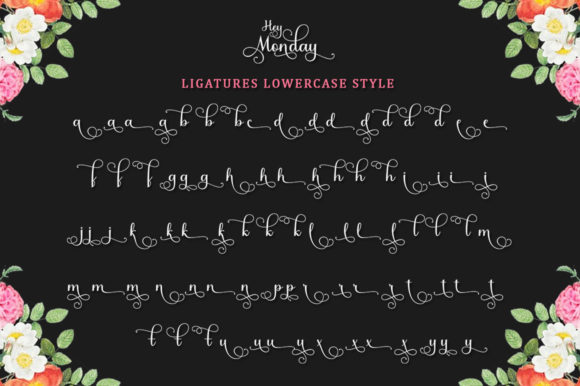 Hey
Monday
LIGATURES LOWERCASE STYLE
a a a a b b b c d d d d d d e e
f f f g g g h h h h h h h i i i j
j j j k k k k k k l l l l l l m
m m m n n n n p p r r r r t t t t
t t t u u u y x x x x y y y